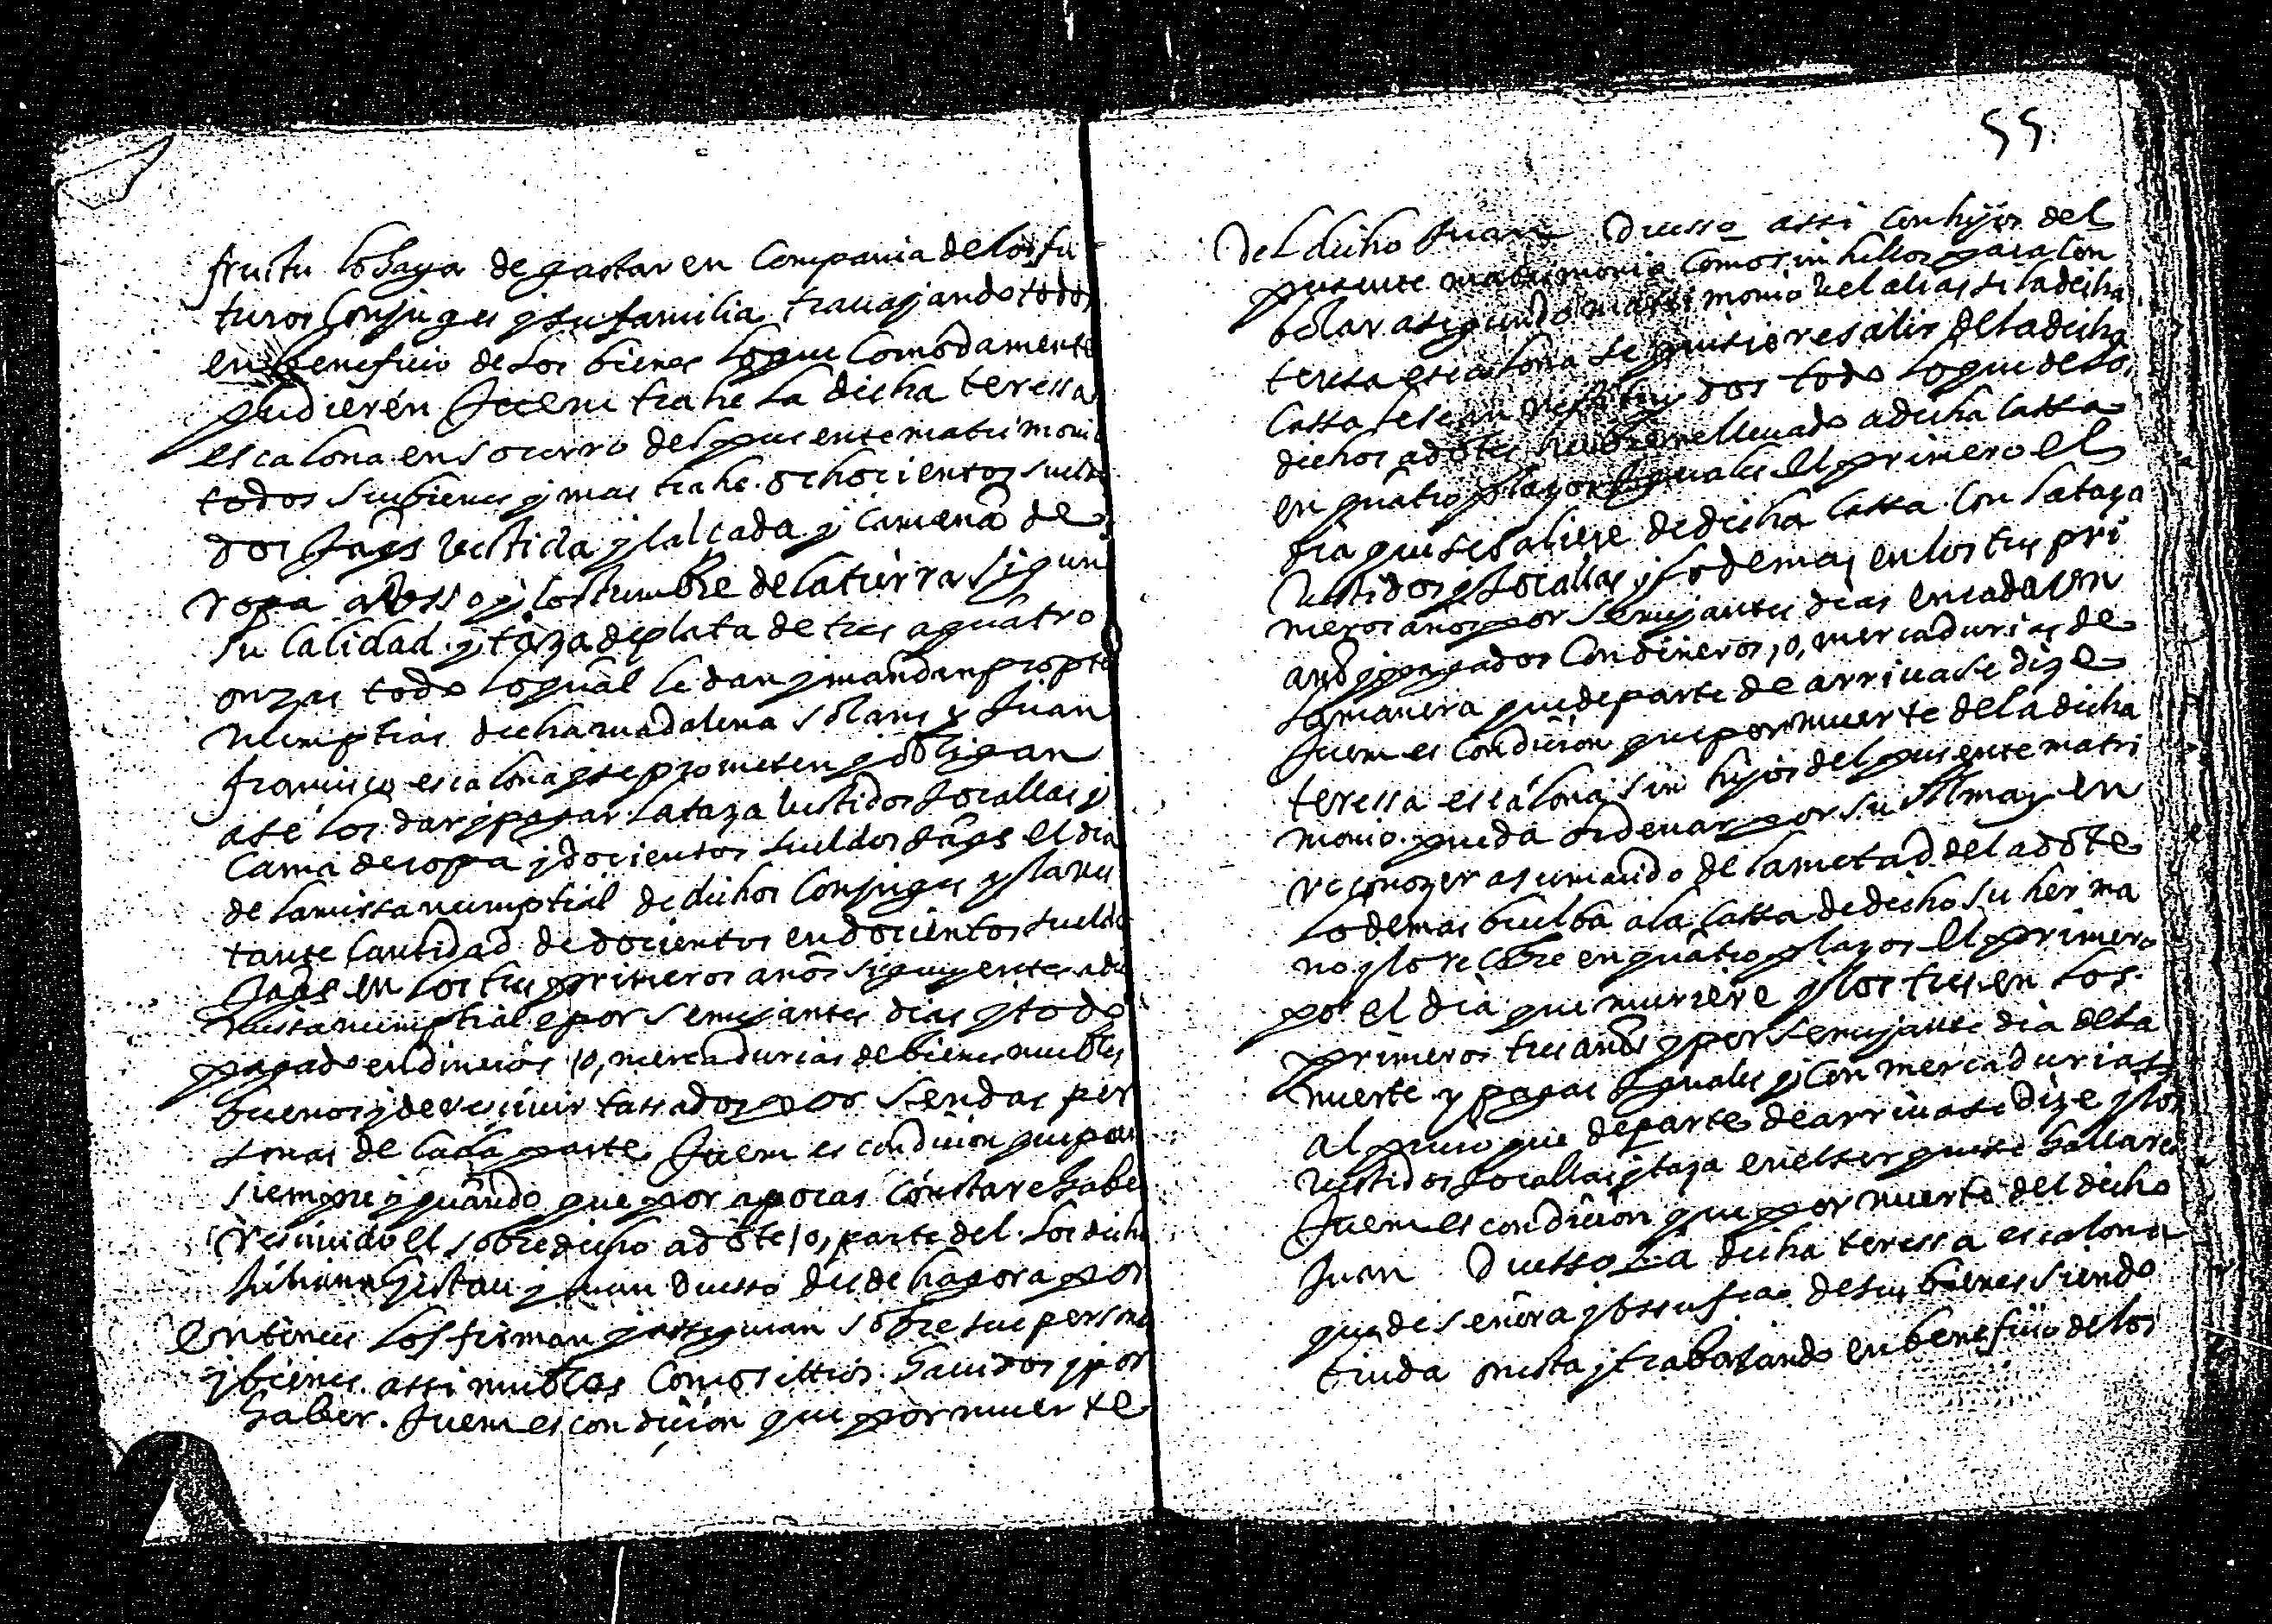 fructu lo haya de gastar en compania de los fu
turos conjuges y su familia trauajando todos
en beneficio de los bienes lo que comodamente
pudieren Ittem trahe la dicha teressa
escalona en socorro del presente matrimonio
todos sus bienes y mas trahe ochocientos sueldos
dos Jaqs vestida y calçada y cama de
ropa a vsso y costumbre de la tierra sigun
su calidad y taza de plata de tres a quatro
onzas todo lo qual le dan y mandan propter
numptias dicha madalena solans y Juan
francisco escalona y se prometen y obligan
a se los dar y pagar la taza vestidos Jocallas y
cama de ropa y docientos sueldos Jaqs el dia
de la missa numptial de dichos conjuges y la res
tante cantidad de docientos en docientos sueldos
Jaqs en los tres primeros anos siguyentes a dicha
missa numptial e por semejantes dias y todo
pagado en dineros /o, mercadurias de bienes muebles
buenos y de receuir tassados por sendas per
sonas de cada parte Ittem es condicion que para
siempre y quando que por apocas constare haber
receuido el sobredicho adote /o, parte del los dichos
gistau y Juan Duesso desde hagora por
entonces los firman y asseguran sobre sus personas
y bienes assi muebles como sittios hauidos y por
haber. Ittem es condicion que por muerte
55.
Del dicho Juan Duesso assi con hijos del
presente matrimonio como sin hellos para con
bolar a segundo matrimonio vel alias si la dicha
teressa escalona se quissiere salir de la dicha
cassa le sean restituydos todo lo que de los
dichos adotes hubiere lleuado a dicha cassa
en quatro plazos yguales el primero el
dia que se saliere de dicha cassa con la taza
vestidos y Jocallas y lo demas en los tres pri
meros años por semejantes dias en cada vn
año y pagados con dineros, o, mercadurias de
la manera que de parte de arriua se dize
Ittem es condicion que por muerte de la dicha
teressa escalona sin hijos del presente matri
monio pueda ordenar por su Alma y en
reconozer asumando de la metad del adote
lo demas buelba a la cassa de dicho su herma
no y lo recobre en quatro plazos el primero
por el dia que muriere y los tres en los
primeros tres anos y por semejante dia de la
muerte y pagas yguales y con mercadurias
al precio que de parte de arriua se dize y los
vestidos Jocallas y taza en el ser que se hallare
Ittem es condicion que por muerte del dicho
Juan Duesso la dicha teressa escalona
quede señora y vssufruc de sus bienes siendo
biuda onesta y trabajando en beneficio de los